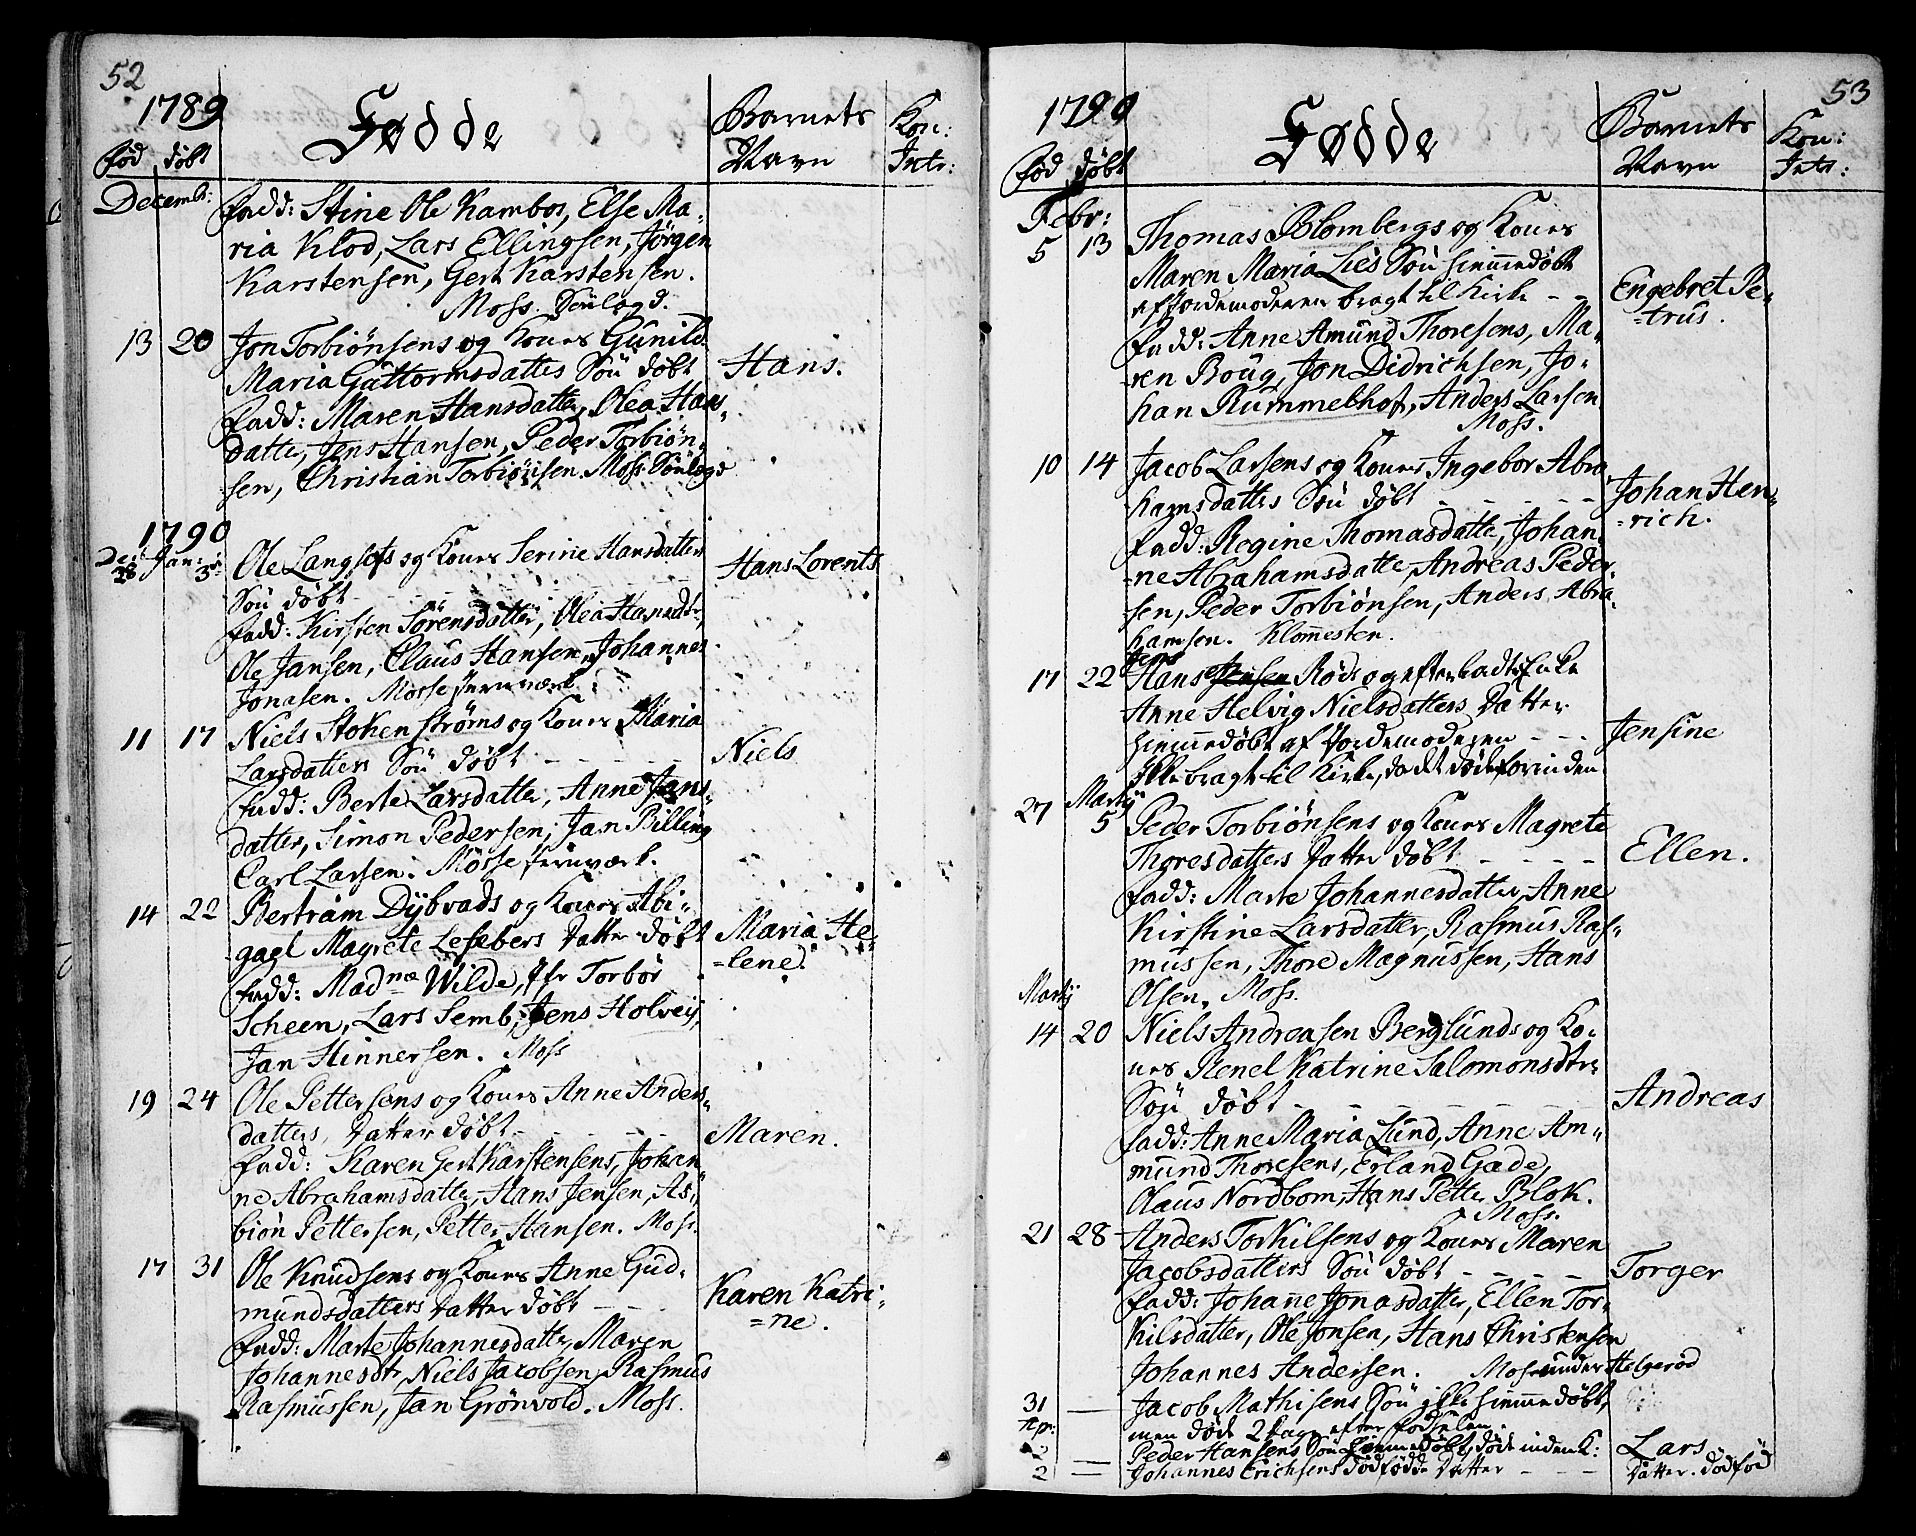 52
1789
Fødde
Barnets Navn
Kon: Intr:
fød døbt
Decembr:
fadd: Stine Ole Kambos, Else Ma-
ria Klod, Lars Ellingsen, Jørgen
Karstensen, Gert Karstensen.
Moss. Sönlagd.
13 20 Jon Torbiönsens og Kones Gunild
Maria Guttormsdatters Sön døbt Hans.
fadd: Maren Hansdatter, Olea Hans-
datter, Jens Hansen, Peder Torbiön-
sen, Christian Torbiönsen. Moss Sönlagd
1790
Dec: 28 Jan: 3 Ole Langsets og Kones Serine Hansdatters Hans Lorents
Sön døbt
fadd: Kirsten Sörensdatter, Olea Hansdtr,
Ole Jansen, Claus Hansen, Johannes
Jonasen. Mosse Jernværk.
11 17 Niels Stokenströms og Kones Maria
Larsdatters Sön døbt Niels
fadd: Berte Larsdatter, Anne Jans-
datter, Simon Pedersen, Jan Billing
Carl Larsen. Mosse Jernværk.
14 22 Bertram Dybvads og Kones Abi-
gael Magrete Lefebers Datter døbt Maria He-
=lene.
fadd: Madme Wilde, Jfr Torbör
Scheen, Lars Semb, Jens Holvej,
Jan Hinnersen. Moss
19 24 Ole Pettersens og Kones Anne Anders-
datters, Datter døbt Maren.
fadd: Karen Gert Karstensens, Johan-
ne Abrahamsdatter, Hans Jensen, As-
biön Pettersen, Petter Hansen. Moss.
17 31 Ole Knudsens og Kones Anne Gud-
mundsdatters Datter døbt Karen Katri-
=ne.
fadd: Marte Johannesdatter, Maren
Johannesdtr, Niels Jacobsen, Rasmus
Rasmussen, Jan Grönvold. Moss.
53
1790
Fødde
Barnets Navn
Kon: Intr:
fød døbt
Febr:
5 13 Thomas Blombergs og Kones
Maren Maria Lies Sön hiemmedøbt
af Jordemoderen bragt til Kirke Engebret Pe-
=trus.
fadd: Anne Amund Thoresens, Ma-
ren Boug, Jon Didrichsen, Jo-
han Rummelhof, Anders Larsen
Moss.
10 14 Jacob Larsens og Kones Ingebor Abra-
hamsdatters Sön døbt Johan Hen-
=rich.
fadd: Regine Thomasdatter, Johan-
ne Abrahamsdatter, Andreas Peder-
sen, Peder Torbiönsen, Anders Abra-
hamsen. Klommesten.
17 22 Hans Jens Röds og efterladte Enke
Anne Helvig Nielsdatters Datter
hiemmedøbt af Jordemoderen Jensine
Ikke bragt til Kirke, da det døde forinden
27 Martij 5 Peder Torbiönsens og Kones Magrete
Thoresdatters Datter døbt Ellen.
fadd: Marte Johannesdatter, Anne
Kirstine Larsdatter, Rasmus Ras-
mussen, Thore Magnussen, Hans
Olsen. Moss.
Martij
14 20 Niels Andreasen Berglunds og Ko-
nes Renel Katrine Salomonsdtrs
Sön døbt Andreas
fadd: Anne Maria Lund, Anne Am-
mund Thoresens, Erland Gade,
Olaus Nordbom, Hans Petter Blok.
Moss.
21 28 Anders Torkilsens og Kones Maren
Jacobsdatters Sön døbt Torger
fadd: Johanne Jonasdatter, Ellen Tor-
kilsdatter, Ole Jonsen, Hans Christensen
Johannes Andersen. Moss under Helgerød
31 — Jacob Mathisens Sön ikke hiemmedøbt,
men døde 2 dage efter fødselen.
Apr:
2 Peder Hansens Sön hiemmedøbt, døde inden K: Lars
2 — Johannes Erichsens dødfødde Datter Datter. dødfød